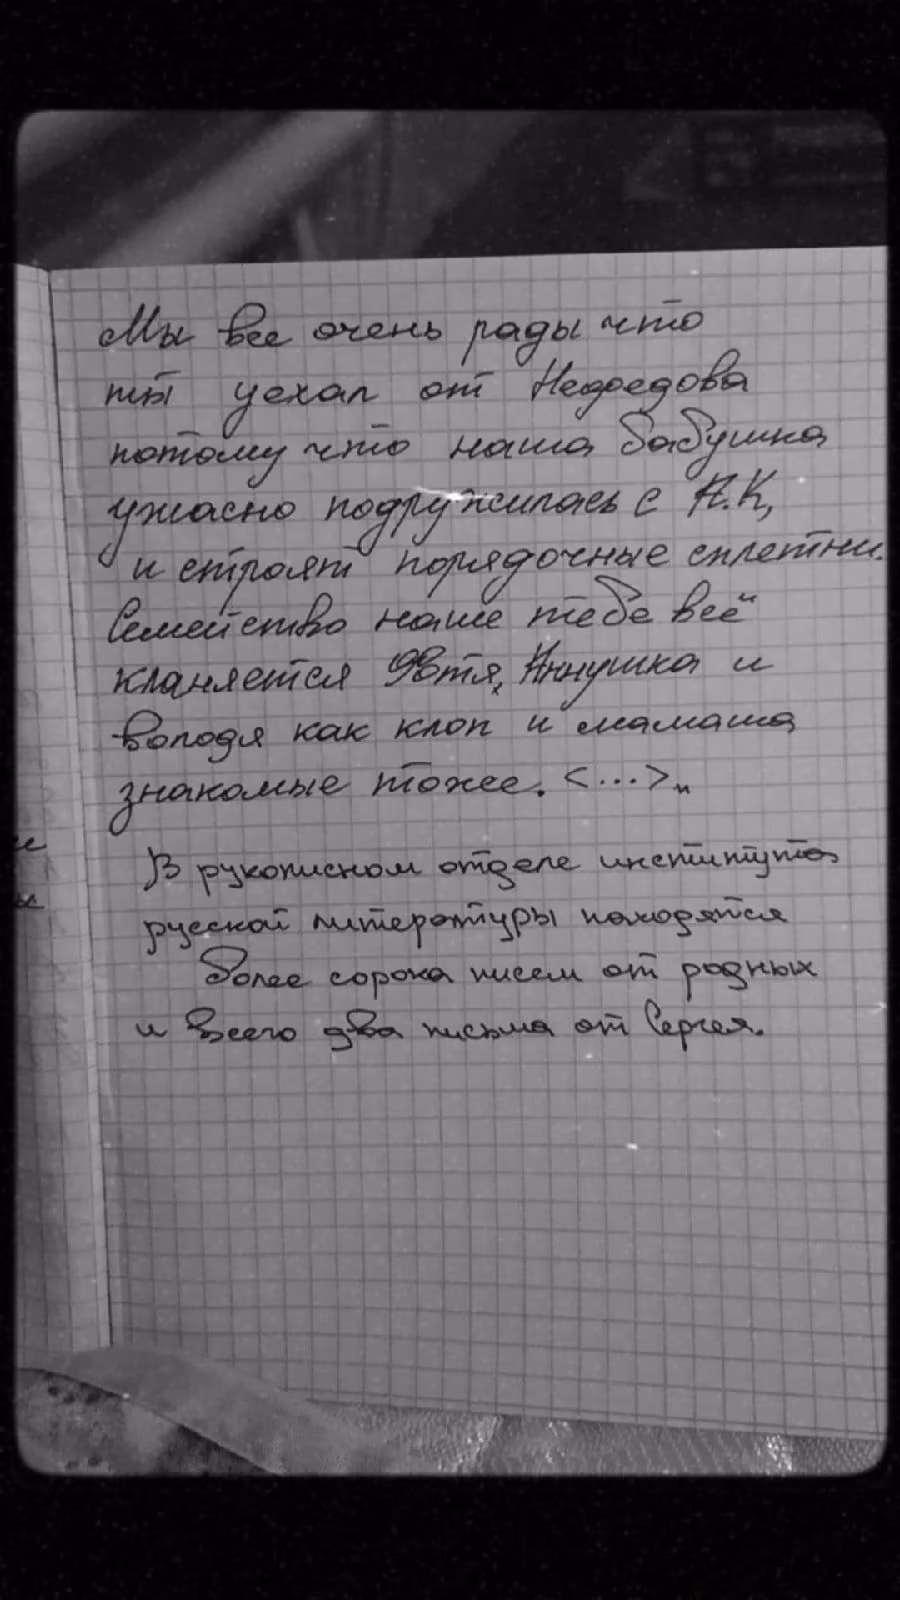 Мы все очень рады что
ты уехал от Нефедова
потому что наша бабушка
ужасно подружилась с А.К,
и строят порядочные сплетни.
Семейство наше тебе всё
кланяется Явтя, Аннушка и
володя как клоп и мамаша
знакомые тоже. <...>"
В рукописном отделе института
русской литературы находятся
более сорока писем от родных
и всего два письма от Сергея.